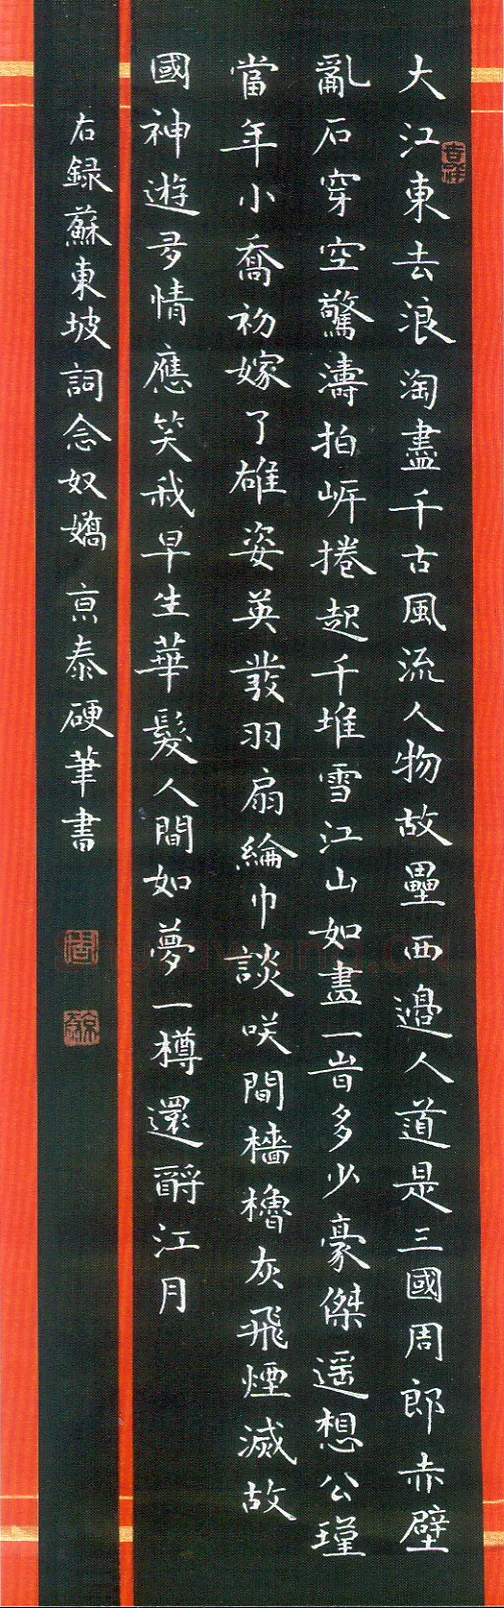 大江東去浪淘盡千古風流人物故壘西邊人道是三國周郎赤壁
亂石穿空驚濤拍岸捲起千堆雪江山如畫一旹多少豪傑遥想公瑾
當年小喬初嫁了雄姿英發羽扇綸巾談咲間檣櫓灰飛煙滅故
國神遊多情應笑我早生華髮人間如夢一樽還酹江月
右録蘇東坡詞念奴嬌 泰硬筆書
吉祥
周